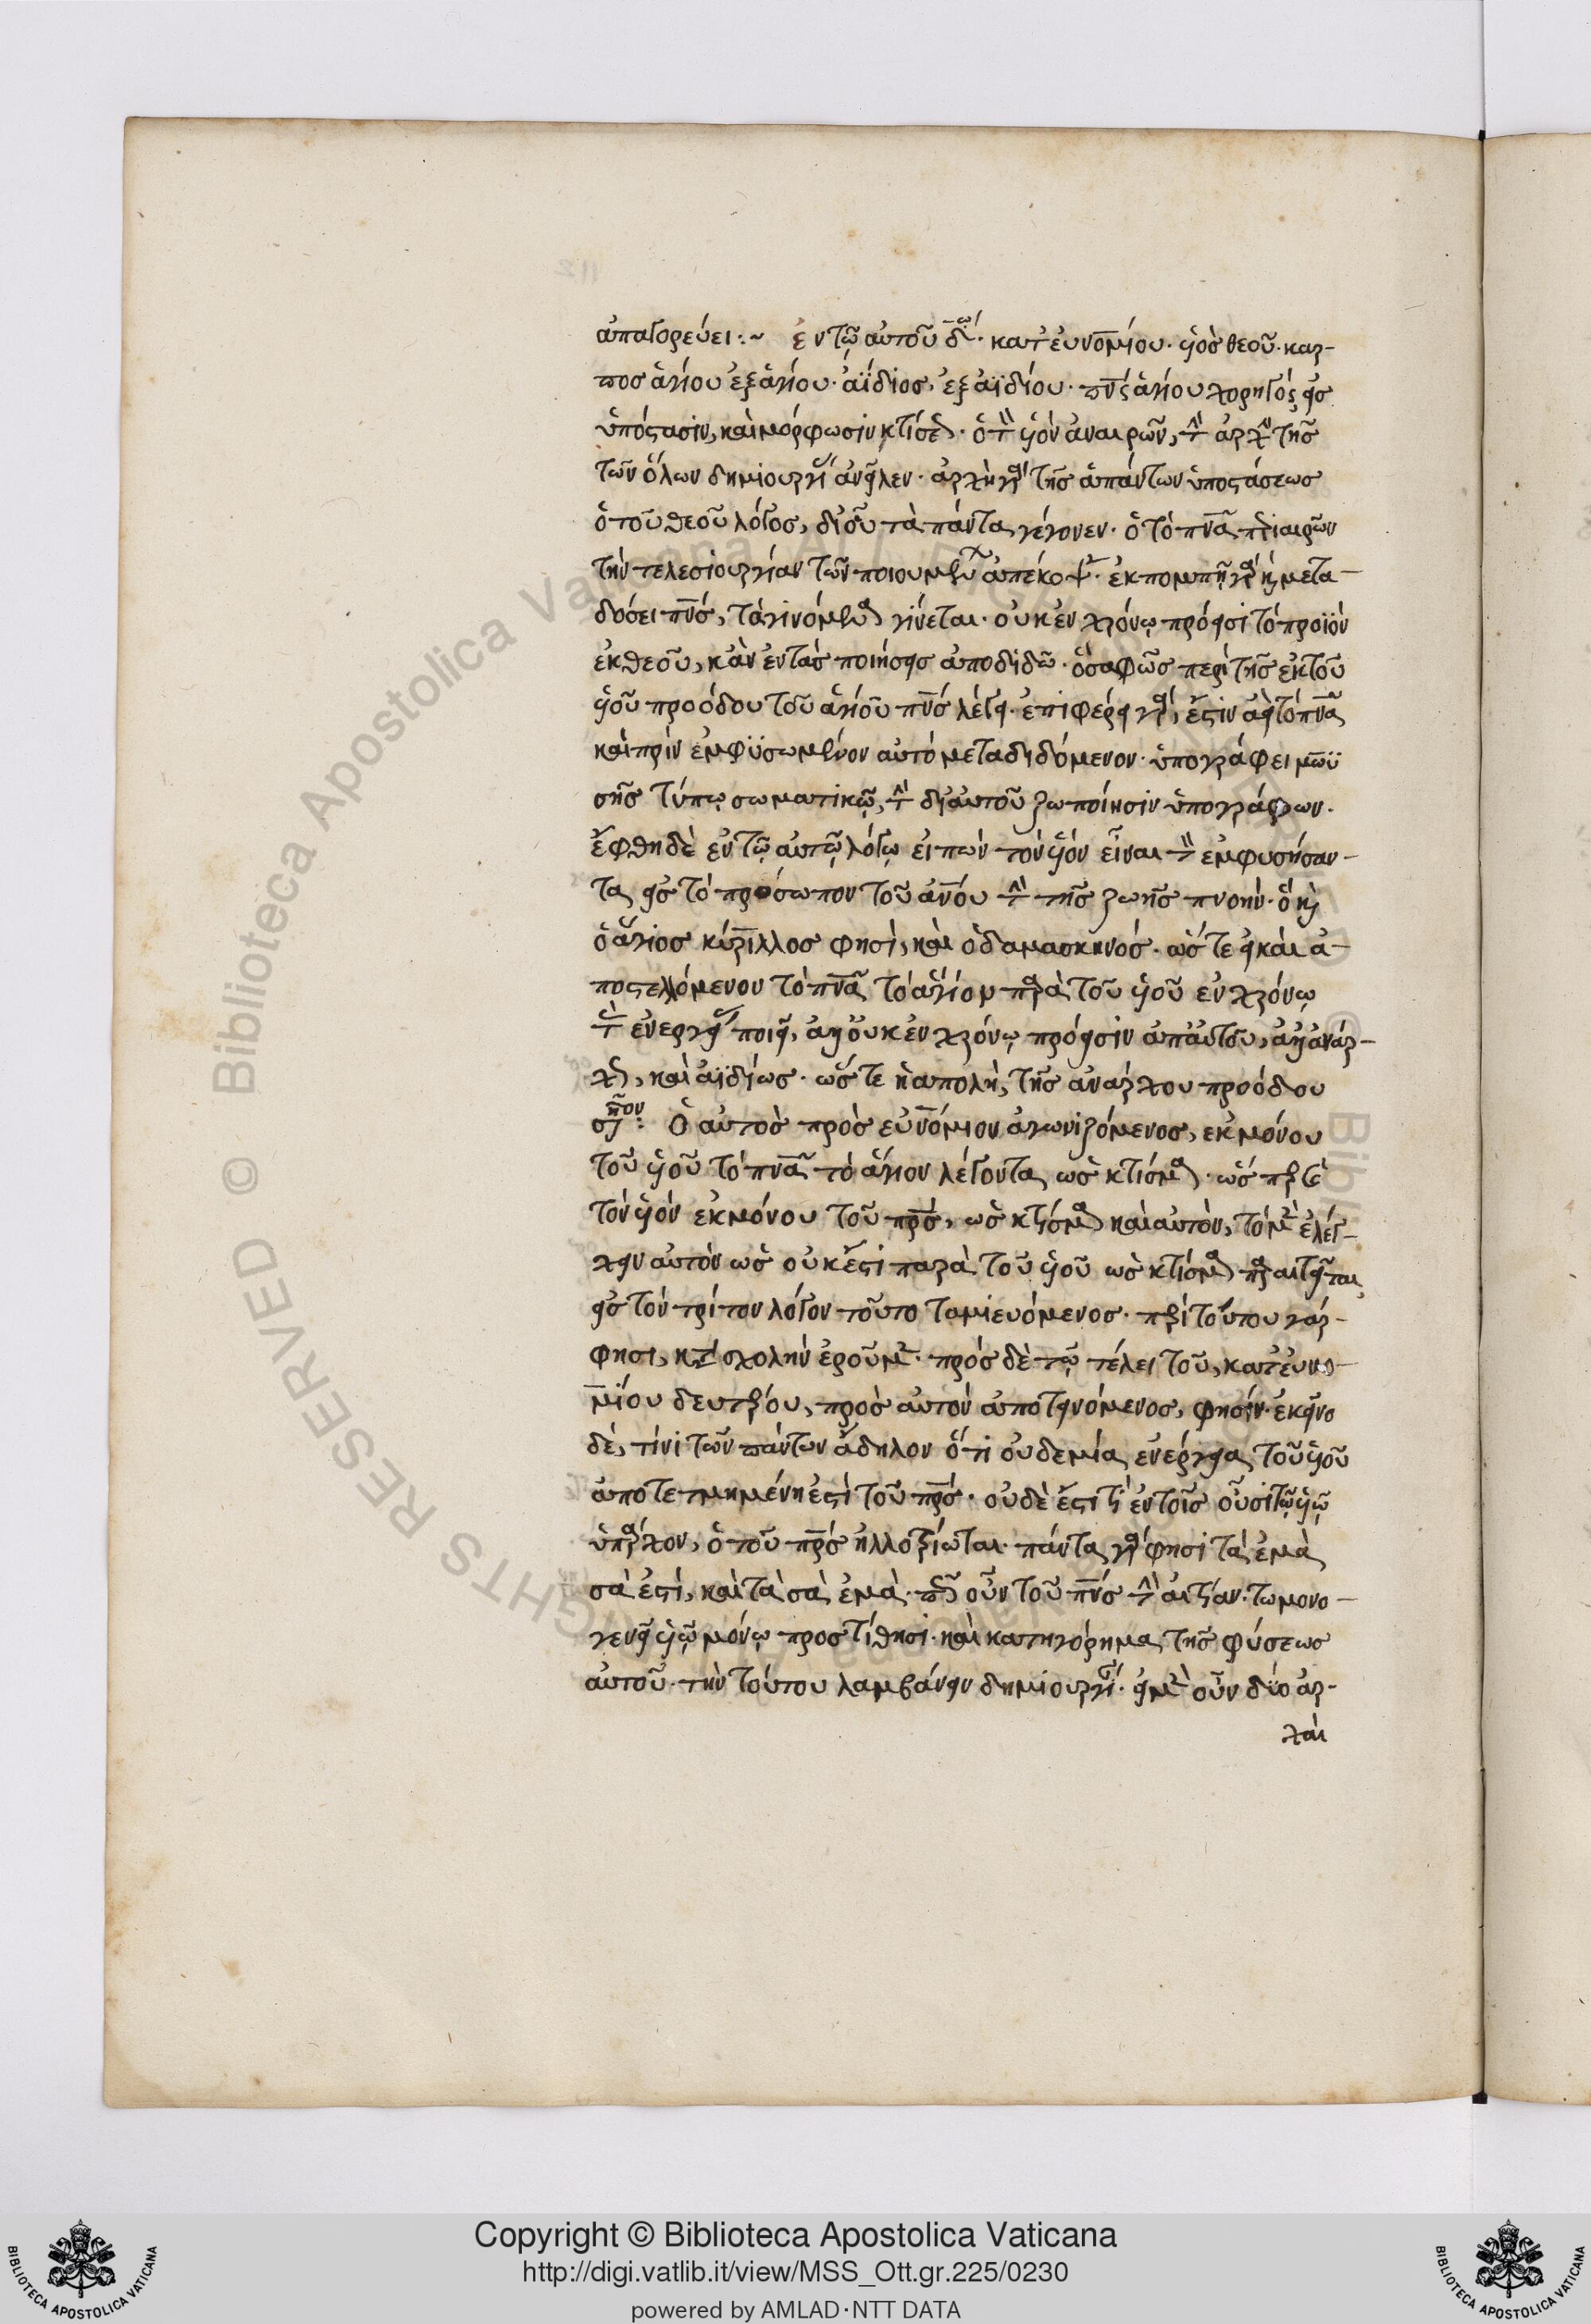 ἀπαγορεύει :~ ἐν τῷ αὐτοῦ δω· κατ εὐνομίου· υἱὸς θεοῦ· καρ-
πος ἁγίου ἐξ ἁγίου· ἀΐδιος, ἐξ ἀϊδίου· πνς ἁγίου χορηγός εἰς
ὑπόστασιν, καὶ μόρφωσιν κτίσεως· ὁ τὸν υἱὸν ἀναιρῶν, τὴν ἀρχὴν τῆς
τῶν ὅλων δημιουργίας ἀνεῖλεν· ἀρχὴ γὰρ τῆς ἁπάντων ὑποστάσεως
ὁ τοῦ θεοῦ λόγος, δι οὗ τὰ πάντα γέγονεν· ὁ τὸ πνα περιαιρῶν
τὴν τελεσιουργίαν τῶν ποιουμένων ἀπέκοψε· ἐκπομπῇ γὰρ καὶ μετα-
δόσει πνς, τὰ γινόμενα γίνεται· οὐκ ἐν χρόνῳ πρόεισι τὸ προϊὸν
ἐκ θεοῦ, κἂν ἐν τὰς ποιήσεις ἀποδιδῶ· ὃ σαφῶς περὶ τῆς ἐκ τοῦ
υἱοῦ προόδου τοῦ ἁγίου πνς λέγει· ἐπιφέρει γάρ, ἔστιν ἀεὶ τὸ πνα
καὶ πρὶν ἐμφυσωμένον αὐτὸ μεταδιδόμενον· ὑπογράφει μωϋ
σῆς τύπῳ σωματικῷ, τὴν δι αὐτοῦ ζωποίησιν ὑπογράφων·
ἔφθη δὲ ἐν τῷ αὐτῷ λόγῳ εἰπὼν τὸν υἱὸν εἶναι τὸν ἐμφυσήσαν-
τα εἰς τὸ πρόσωπον τοῦ ανου τὴν τῆς ζωῆς πνοήν· ὃ καὶ
ὁ ἅγιος κύριλλος φησί, καὶ ὁ δαμασκηνός· ὥστε εἰ καὶ ἀ-
ποστελλόμενον τὸ πνα τὸ ἅγιον παρὰ τοῦ υἱοῦ ἐν χρόνῳ
τὰς ἐνεργείας ποιεῖ, ἀλλ οὐκ ἐν χρόνῳ πρόεισιν ἀπ αὐτοῦ, ἀλλ ἀνάρ-
χως, καὶ ἀϊδίως· ὥστε ἡ ἀποστολὴ, τῆς ἀνάρχου προόδου
σημεῖον: Ὁ αὐτὸς πρὸς εὐνόμιον ἀγωνιζόμενος, ἐκ μόνου
τοῦ υἱοῦ τὸ πνα τὸ ἅγιον λέγοντα ὡς κτίσμα· ὥσπερ τε
τὸν υἱὸν ἐκ μόνου τοῦ πρς, ὡς κτίσμα καὶ αὐτὸν, τὸ μὲν ἐλέγ-
χειν αὐτὸν ὡς οὐκ ἔστι παρὰ τοῦ υἱοῦ ὡς κτίσμα παραιτεῖται
εἰς τὸν τρίτον λόγον τοῦτο ταμιευόμενος· περὶ τούτου γάρ
φησι, κατὰ σχολὴν ἐροῦμεν· πρὸς δὲ τῷ τέλει τοῦ, κατ εὐνο-
μίου δευτέρου, πρὸς αὐτὸν ἀποτεινόμενος, φησίν· ἐκεῖνο
δὲ, τίνι τῶν πάντων ἄδηλον ὅτι οὐδεμία ἐνέργεια τοῦ υἱοῦ
ἀποτετμημένη ἐστὶ τοῦ πρς· οὐδὲ ἔστι τὶ ἐν τοῖς οὖσι τῷ υἱῷ
ὑπάρχον, ὃ τοῦ πρς ἠλλοτρίωται· πάντα γάρ φησι τὰ ἐμὰ
σὰ ἐστί, καὶ τὰ σὰ ἐμὰ· πῶς οὖν τοῦ πνς τὴν αἰτίαν· τῶ μονο-
γενεῖ υἱῷ μόνῳ προστίθησι· καὶ κατηγόρημα τῆς φύσεως
αὐτοῦ· τὴν τούτου λαμβάνειν δημιουργίαν· εἰ μὲν οὖν δύο ἀρ-
χαὶ